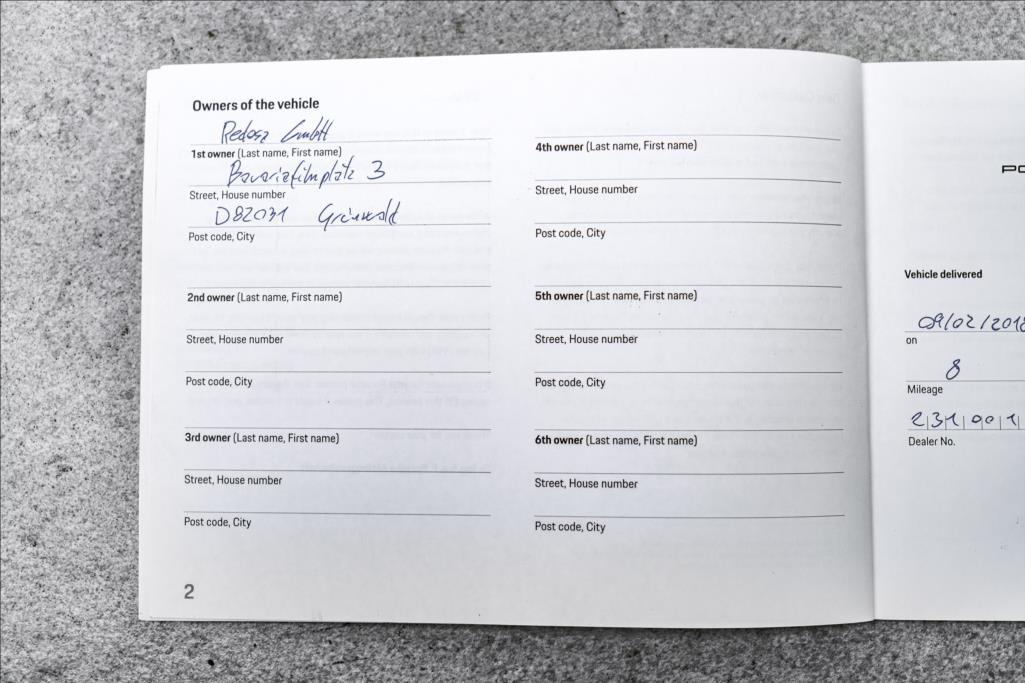 Owners of the vehicle
Redosz GmbH
1st owner (Last name, First name)
Bavariafilmplatz 3
Street, House number
D82031 Grünwald
Post code, City
2nd owner (Last name, First name)
Street, House number
Post code, City
3rd owner (Last name, First name)
Street, House number
Post code, City
2
4th owner (Last name, First name)
Street, House number
Post code, City
5th owner (Last name, First name)
Street, House number
Post code, City
6th owner (Last name, First name)
Street, House number
Post code, City
PO
Vehicle delivered
09/02/2018
on
8
Mileage
2|3|1|0|0|1|
Dealer No.